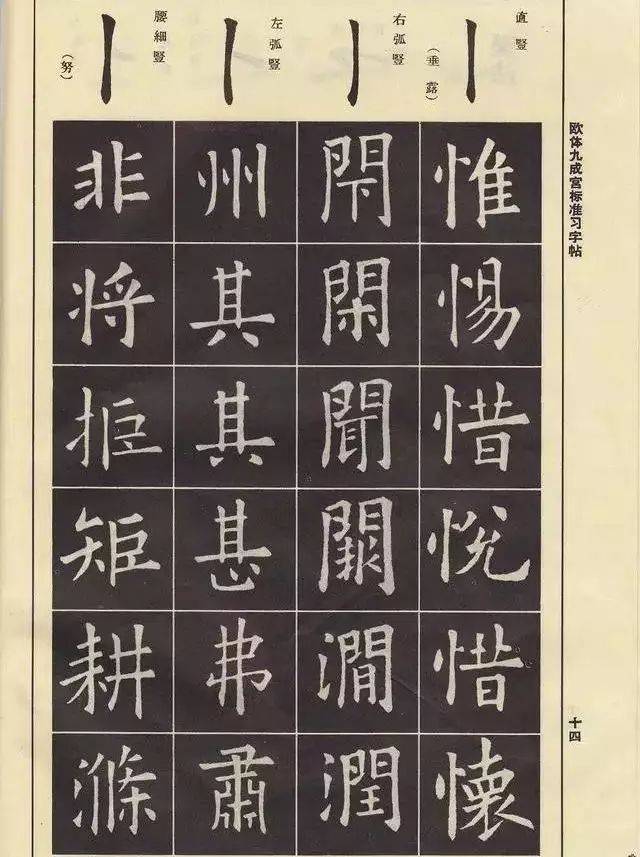 欧体九成宫标准习字帖
十四
直豎
（垂露）
惟惕惜悦惜懷
右弧豎
閇閑聞闕澗潤
左弧豎
州其其甚弗肅
腰細豎
（努）
非将拒矩耕滌